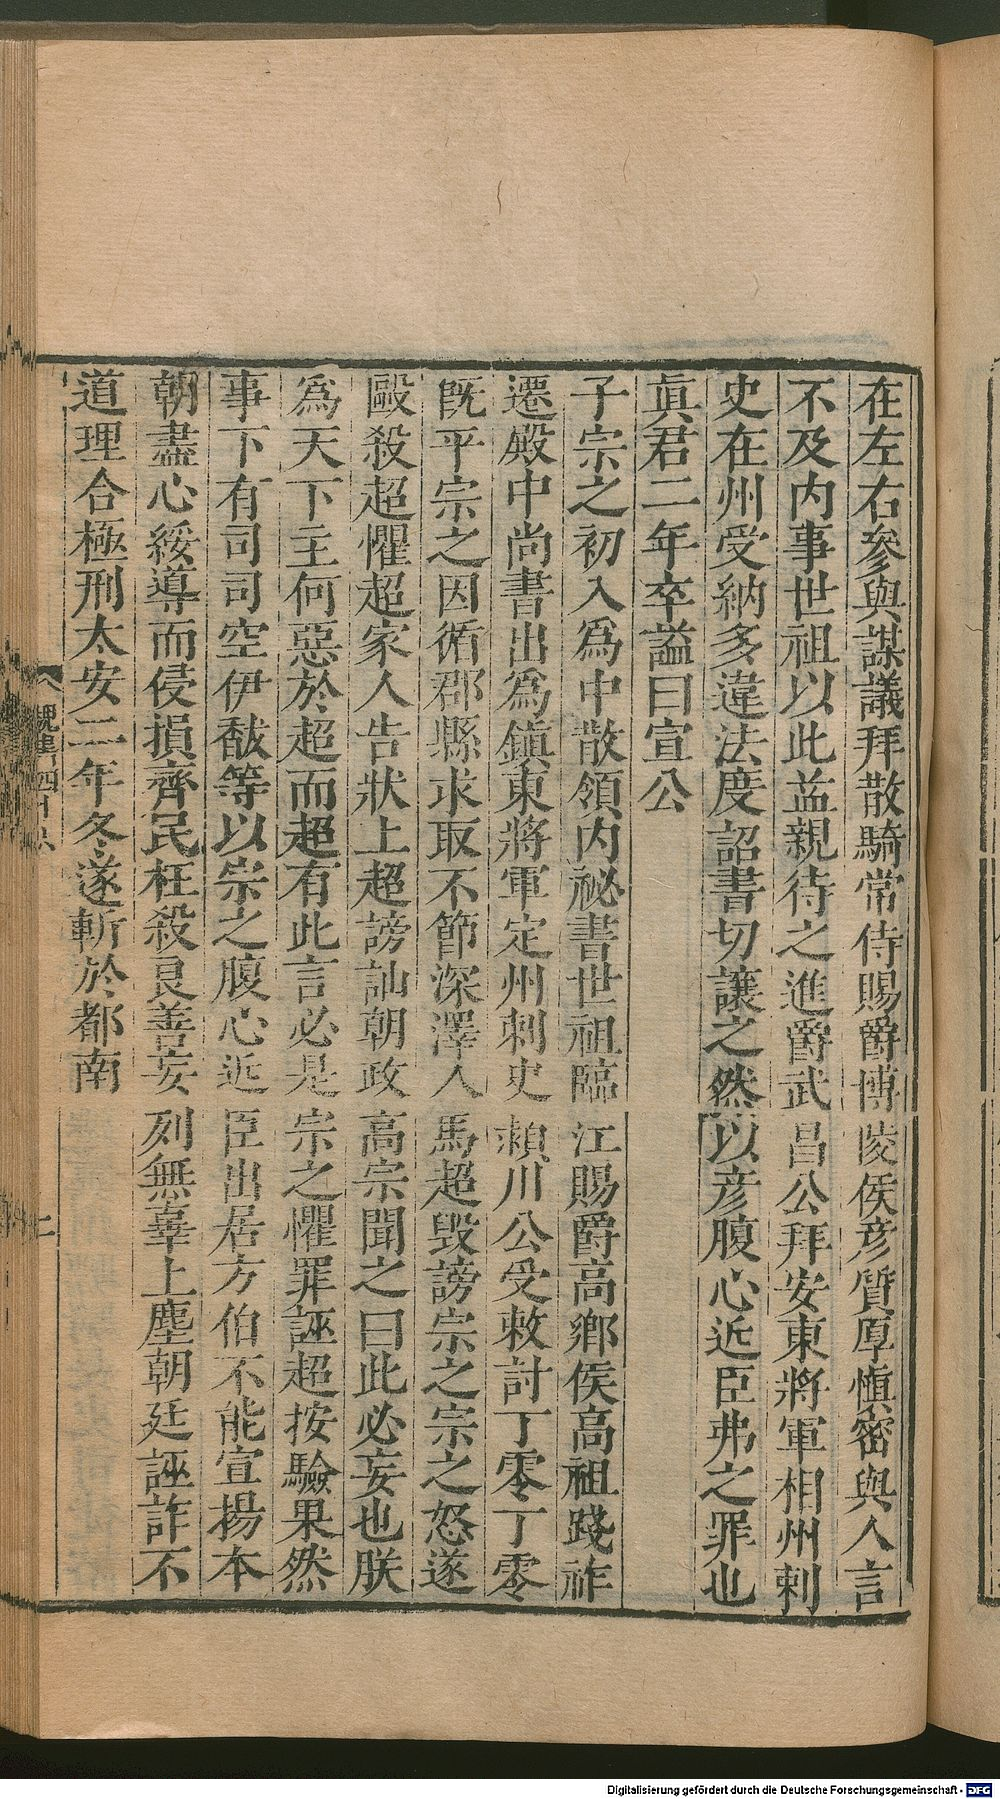 在左右參與謀議拜散騎常侍賜爵博陵侯彦質厚愼密與人言
不及内事世祖以此益親待之進爵武昌公拜安東將軍相州刺
史在州受納多違法度詔書切讓之然以彦腹心近臣弗之罪也
眞君二年卒謚曰宣公
子宗之初入爲中散領内祕書世祖臨江賜爵高鄉侯高祖踐祚
遷殿中尚書出爲鎮東將軍定州刺史潁川公受敕討丁零丁零
旣平宗之因循郡縣求取不節深澤人馬超毀謗宗之宗之怒遂
毆殺超懼超家人告狀上超謗訕朝政高宗聞之曰此必妄也朕
爲天下主何惡於超而超有此言必是宗之懼罪誣超按驗果然
事下有司司空伊馛等以宗之腹心近臣出居方伯不能宣揚本
朝盡心綏導而侵損齊民枉殺良善妄列無辜上塵朝廷誣詐不
道理合極刑太安二年冬遂斬於都南
魏書四十六
二
Digitalisierung gefördert durch die Deutsche Forschungsgemeinschaft - DFG